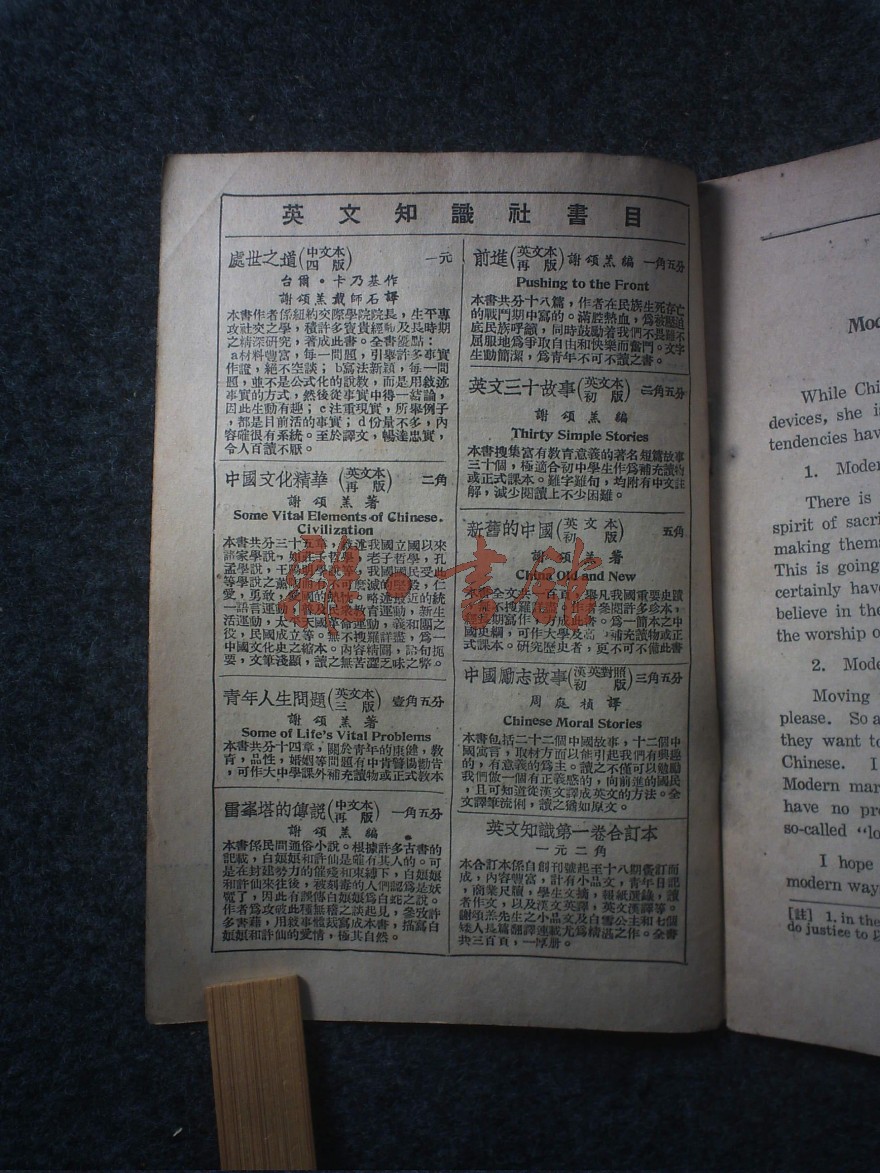 英文知識社書目
處世之道(中文本四版) 一元
台爾·卡乃基作
謝頌羔戴師石譯
本書作者係紐約交際學院院長,生平專
攻社交之學,積許多寶貴經驗及長時期
之精深研究,著成此書。全書優點:
a材料豐富,每一問題,引舉許多事實
作證,絕不空談;b寫法新穎,每一問
題,並不是公式化的說教,而是用敘述
事實的方式,然後從事實中得一結論,
因此生動有趣;c注重現實,所舉例子
,都是目前活的事實;d份量不多,內
容確很有系統。至於譯文,暢達忠實,
令人百讀不厭。
中國文化精華(英文本再版) 二角
謝頌羔著
Some Vital Elements of Chinese
Civilization
本書共分三十五章,敘述我國立國以來
諸家學說,如莊子哲學,老子哲學,孔
孟學說,王陽明學說等,我國國民受此
等學說之薰陶而有不可磨滅的堅毅,仁
愛,勇敢,愛國的熱忱。略述最近的統
一語言運動,普及民眾教育運動,新生
活運動,太平天國革命運動,義和團之
役,民國成立等。無不搜羅詳盡,爲一
中國文化史之縮本。內容精闢,語句扼
要,文筆淺顯,讀之無苦澀乏味之弊。
青年人生問題(英文本三版) 壹角五分
謝頌羔著
Some of Life's Vital Problems
本書共分十四章,關於青年的康健,教
育,品性,婚姻等問題有中肯警惕勸告
,可作大中學課外補充讀物或正式教本
雷峯塔的傳說(中文本再版) 一角五分
謝頌羔編
本書係民間通俗小說。根據許多古書的
記載,白娘娘和許仙是確有其人的。可
是在封建勢力的摧殘和束縛下,白娘娘
和許仙來往後,被刻毒的人們認爲是妖
魔了,因此有誤傳白娘娘爲白蛇之說。
作者爲攻破此種無稽之談起見,參攷許
多書藉,用敍事體裁寫成本書,描寫白
娘娘和許仙的愛情,極其自然。
前進(英文本再版)謝頌羔編 一角五分
Pushing to the Front
本書共分十八篇,作者在民族生死存亡
的戰鬥期中寫的。滿腔熱血,爲被壓迫
底民族呼籲,同時鼓勵着我們不畏難不
屈服地爲爭取自由和快樂而奮鬥。文字
生動簡潔,爲青年不可不讀之書。
英文三十故事(英文本初版) 二角五分
謝頌羔編
Thirty Simple Stories
本書搜集富有教育意義的著名短篇故事
三十個,極適合初中學生作爲補充讀物
或正式課本。難字難句,均附有中文註
解,減少閱讀上不少困難。
新舊的中國(英文本初版) 五角
謝頌羔著
China Old and New
本書全文 百頁,舉凡我國重要史蹟
無不搜羅 作者參閱許多珍本,
期寫作,方成此書。爲一簡本之中
國史綱,可作大學及高 補充讀物或正
式課本。研究歷史者,更不可不備此書
中國勵志故事(漢英對照初版)三角五分
周庭楨譯
Chinese Moral Stories
本書包括二十二個中國故事,十二個中
國寓言,取材方面以能引起我們有興趣
的,有意義的爲主。讀之不僅可以勉勵
我們做一個有正義感的,向前進的國民
,且可知道從漢文譯成英文的方法。全
文譯筆流俐,讀之猶如原文。
英文知識第一卷合訂本
一元二角
本合訂本係自創刊號起至十八期彙訂而
成,內容豐富,計有小品文,青年日記
,商業尺牘,學生文摘,報紙選錄,讀
者作文,以及漢文英譯,英文漢譯等。
謝頌羔先生之小品文及白雪公主和七個
矮人長篇翻譯連載尤爲精湛之作。全書
共三百頁,一厚册。
While Chi
devices, she i
tendencies hav
1. Moder
There is
spirit of sacri
making thems
This is going
certainly have
believe in the
the worship o
2. Mode
Moving
please. So a
they want to
Chinese. I
Modern mar
have no pre
so-called "lo
I hope
modern way
[註] 1. in the
do justice to